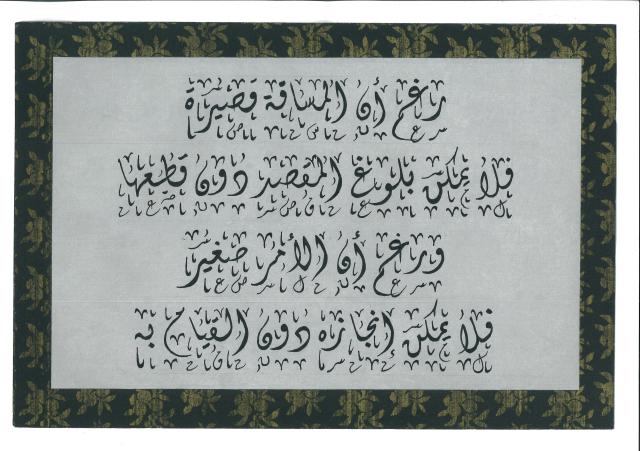 رغم أن المسافة قصيرة
فلا يمكن بلوغ المقصد دون قطعها
ورغم أن الأمر صغير
فلا يمكن إنجازه دون القيام به